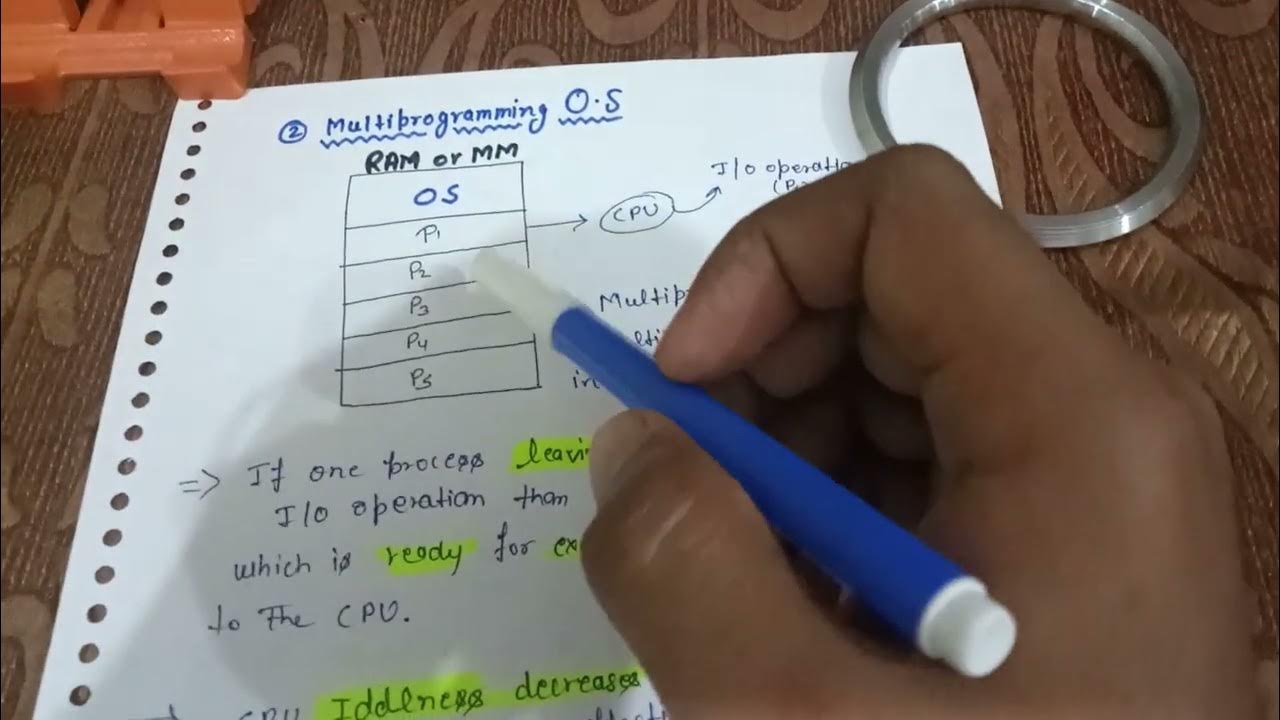 ② Multiprogramming O.S
RAM or MM
OS
P1
P2
P3
P4
P5
CPU
I/O
in
=> If one process
I/O operation than
which is ready for
to The CPU.
CPU Iddleness decreases